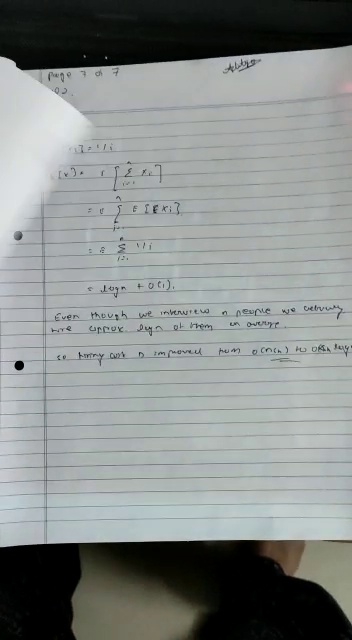 Page 7 of 7
Q2.
] = 1/i
[x] = E [ n Σ i=1 xi ]
= E n Σ i=1 E [xi]
= E n Σ i=1 1/i
= logn + O(1).
Even though we interview n people we actually
hire approx. logn of them on average.
so hiring cost is improved from O(nCh) to